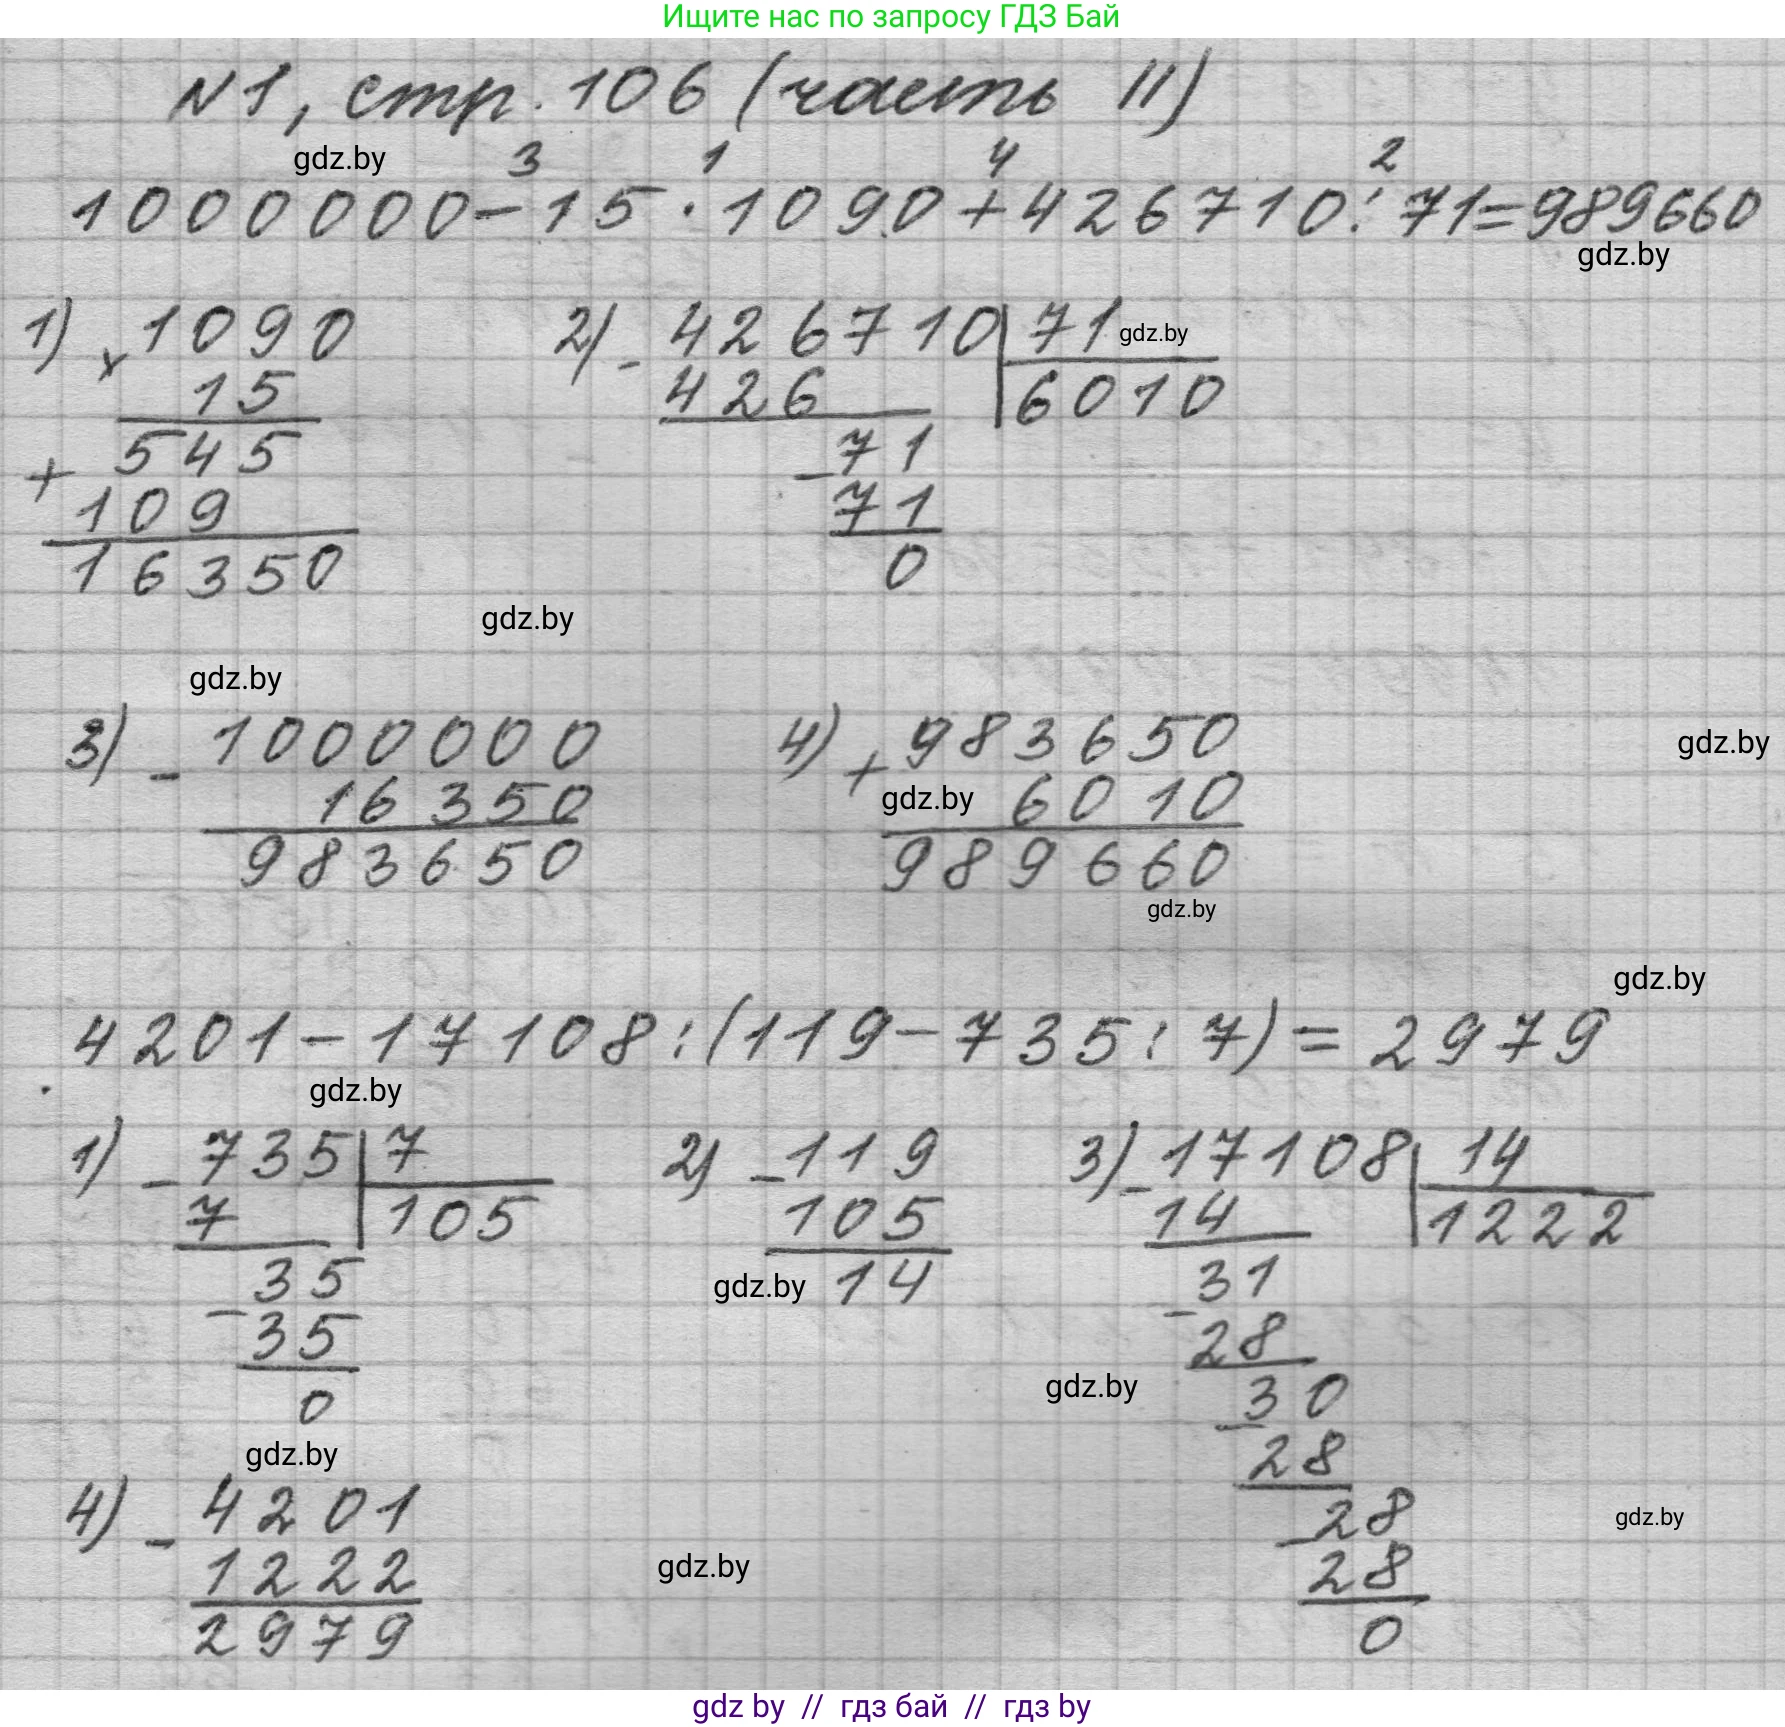 Ищите нас по запросу ГДЗ Бай
N1, стр. 106 (часть II)
gdz.by
3 1 4 2
1000000-15·1090+426710:71=989660
gdz.by
1) × 1090
15
545
+ 109
16350
2) - 426710 | 71 gdz.by
426 | 6010
- 71
71
0
gdz.by
gdz.by
3) - 1000000
16350
983650
4) + 983650
gdz.by 6010
989660
gdz.by
gdz.by
gdz.by
4201-17108:(119-735:7)=2979
gdz.by
1) - 735 | 7
7 | 105
- 35
35
0
2) - 119
105
gdz.by 14
3) - 17108 | 14
14 | 1222
- 31
28
gdz.by - 30
28
- 28
28
0
gdz.by
4) - 4201
1222
2979
gdz.by
gdz.by
gdz by // гдз бай // гдз by